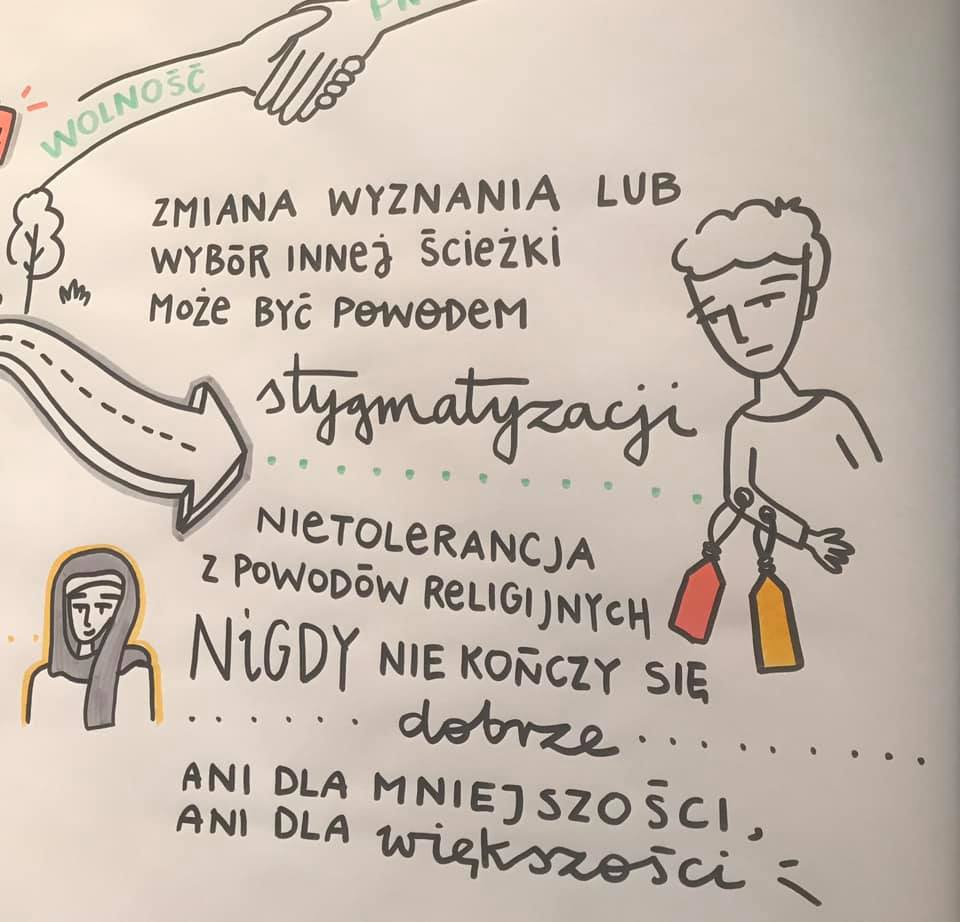 WOLNOŚĆ
ZMIANA WYZNANIA LUB
WYBÓR INNEJ ŚCIEŻKI
MOŻE BYĆ POWODEM
stygmatyzacji
NIETOLERANCJA
Z POWODÓW RELIGIJNYCH
NIGDY NIE KOŃCZY SIĘ
dobrze
ANI DLA MNIEJSZOŚCI,
ANI DLA większości